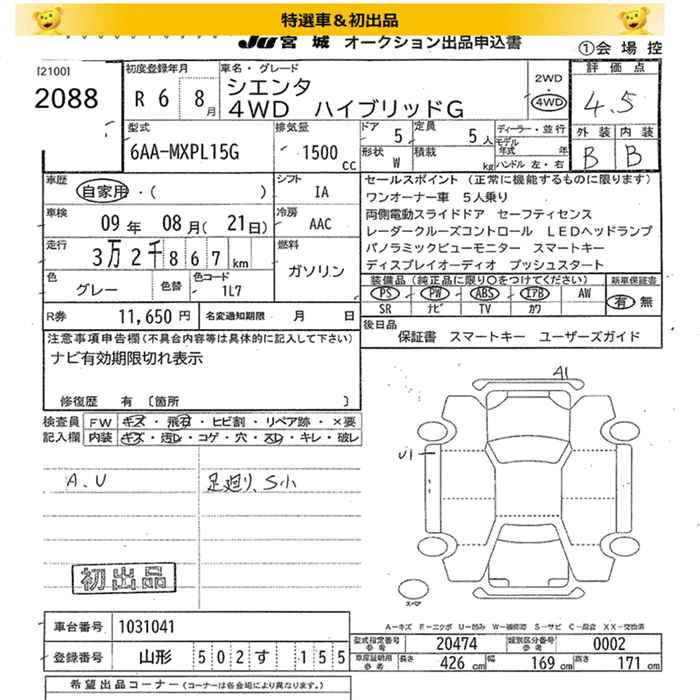 特選車＆初出品
JU宮城 オークション出品申込書
①会場控
[2100]
2088
初度登録年月
R 6 8月
車名・グレード
シエンタ
4WD ハイブリッドG
2WD
4WD
評価点
4.5
外装 内装
B B
型式
6AA-MXPL15G
排気量
1500 cc
ドア 5
定員 5人
形状 W
積載 kg
ディーラー・並行
モデル年式 年
ハンドル 左・右
車歴
自家用・( )
シフト
IA
車検
09年 08月(21日)
冷房
AAC
走行
3万2千867km
燃料
ガソリン
色
グレー
色替
色コード
1L7
セールスポイント (正常に機能するものに限ります)
ワンオーナー車 5人乗り
両側電動スライドドア セーフティセンス
レーダークルーズコントロール LEDヘッドランプ
パノラミックビューモニター スマートキー
ディスプレイオーディオ プッシュスタート
装備品(純正品に限り○をつけてください)
新車保証書
PS PW ABS エアB AW
SR ナビ TV カワ
有 無
R券 11,650円
名変通知期限 月 日
後日品
保証書 スマートキー ユーザーズガイド
注意事項申告欄(不具合内容等は具体的に記入して下さい)
ナビ有効期限切れ表示
修復歴 有 〔箇所 〕
検査員記入欄
FW キズ・飛石・ヒビ割・リペア跡・×要
内装 キズ・汚レ・コゲ・穴・スレ・キレ・破レ
A.U
足廻り、S小
初出品
A1
U1
スペア
A－キズ E－エクボ U－凹み W－補修跡 S－サビ C－腐食 XX－交換済
車台番号 1031041
登録番号 山形 502 す 155
型式指定番号 参考 20474
類別区分番号 参考 0002
車庫証明用 参考 長さ 426cm 幅 169cm 高さ 171cm
希望出品コーナー(コーナーは各会場により異なります。)